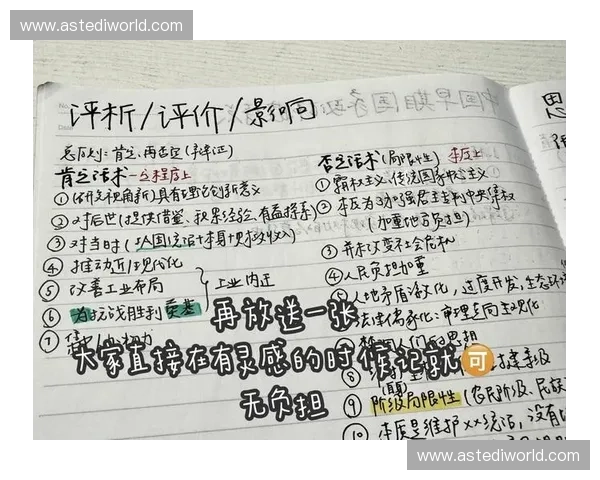 www.astediworld.com
评析/评价/影响
思
总原则:肯定、再否定(辩证)
肯定话术-一定程度上
否定话术(局限性) 本质上
①(研究视角新)具有理论创新意义
①霸权主义、传统国家权主义
②对后世(提供借鉴、积累经验、有益探索)
②本质为了加强君主专制中央集权
(加重地方负担)
③对当时(
③并未改变社会危机
④推动近/现代化
④人民负担加重
⑤改善工业布局
工业内迁
人地矛盾激化,过度开发,生态环
⑥为抗战胜利奠基
法律儒家化:审理走向主观化
⑦
⑧
⑨阶级局限性(农民阶级、民族
⑩本质是维护××统治,没有
再放送一张
大家直接在有灵感的时候记就可
无负担
www.astediworld.com